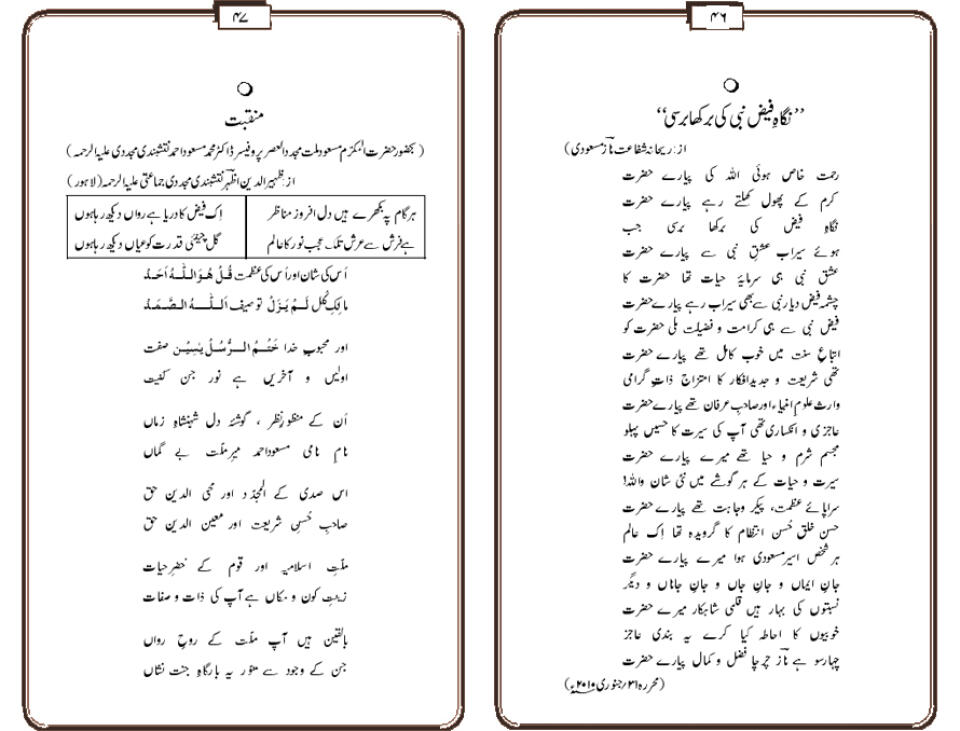 ۴۶
’’نگاہِ فیض نبی کی برکھا برسی‘‘
از: ریحانہ شفاعت نازؔ مسعودی)
رحمت خاص ہوئی اللہ کی پیارے حضرت
کرم کے پھول کھلتے رہے پیارے حضرت
نگاہِ فیض کی برکھا برسی جب
ہوئے سیراب عشقِ نبی سے پیارے حضرت
عشق نبی ہی سرمایۂ حیات تھا حضرت کا
چشمہ فیض دیارِ نبی سے بھی سیراب رہے پیارے حضرت
فیض نبی سے ہی کرامت و فضیلت ملی حضرت کو
اتباعِ سنت میں خوب کامل تھے پیارے حضرت
تھی شریعت و جدید افکار کا امتزاج ذاتِ گرامی
وارث علومِ انبیاء اور صاحبِ عرفان تھے پیارے حضرت
عاجزی و انکساری تھی آپ کی سیرت کا حسیں پہلو
مجسم شرم و حیا تھے میرے پیارے حضرت
سیرت و حیات کے ہر گوشے میں نئی شان واللہ!
سراپائے عظمت، پیکر وجاہت تھے پیارے حضرت
حسن خلق حُسن انتظام کا گرویدہ تھا اِک عالم
ہر شخص اسیر مسعودی ہوا میرے پیارے حضرت
جانِ ایماں و جانِ جاں و جانِ جاناں و دیگر
نسبتوں کی بہار ہیں قلمی شاہکار میرے حضرت
خوبیوں کا احاطہ کیا کرے یہ بندی عاجز
چہار سو ہے نازؔ چرچا فضل و کمال پیارے حضرت
(محررہ ۳۱؍جنوری ۲۰۱۰ء)
۴۷
منقبت
(بحضور حضرت المکرّم مسعود ملت مجدد العصر پروفیسر ڈاکٹر محمد مسعود احمد نقشبندی مجددی علیہ الرحمہ)
از: ظہیر الدین اظہرؔ نقشبندی مجددی جماعتی علیہ الرحمہ (لاہور)
ہر گام پہ بکھرے ہیں دل افروز مناظر اِک فیض کا دریا ہے رواں دیکھ رہا ہوں
ہے فرش سے عرش تک عجب نور کا عالم گل چینیٔ قدرت کو عیاں دیکھ رہا ہوں
اُس کی شان اور اُس کی عظمت قُلْ هُوَ اللّٰهُ اَحَدْ
مالکِ کُل لَمْ يَزَلْ توصیف اَللّٰهُ الصَّمَدْ
اور محبوبِ خدا خَتْمُ الرُّسُلْ يٰسِيْن صفت
اولیں و آخریں ہے نور جن کیفیت
اُن کے منظورِ نظر ، گوشۂ دل شہنشاہِ زماں
نامِ نامی مسعود احمد میرِ ملّت بے گماں
اس صدی کے المجدّد اور محی الدین حق
صاحبِ حُسنِ شریعت اور معین الدین حق
ملّتِ اسلامیہ اور قوم کے خضرِ حیات
زینتِ کون و مکاں ہے آپ کی ذات و صفات
بالیقین ہیں آپ ملّت کے روحِ رواں
جن کے وجود سے منور یہ بارگاہِ جنت نشاں